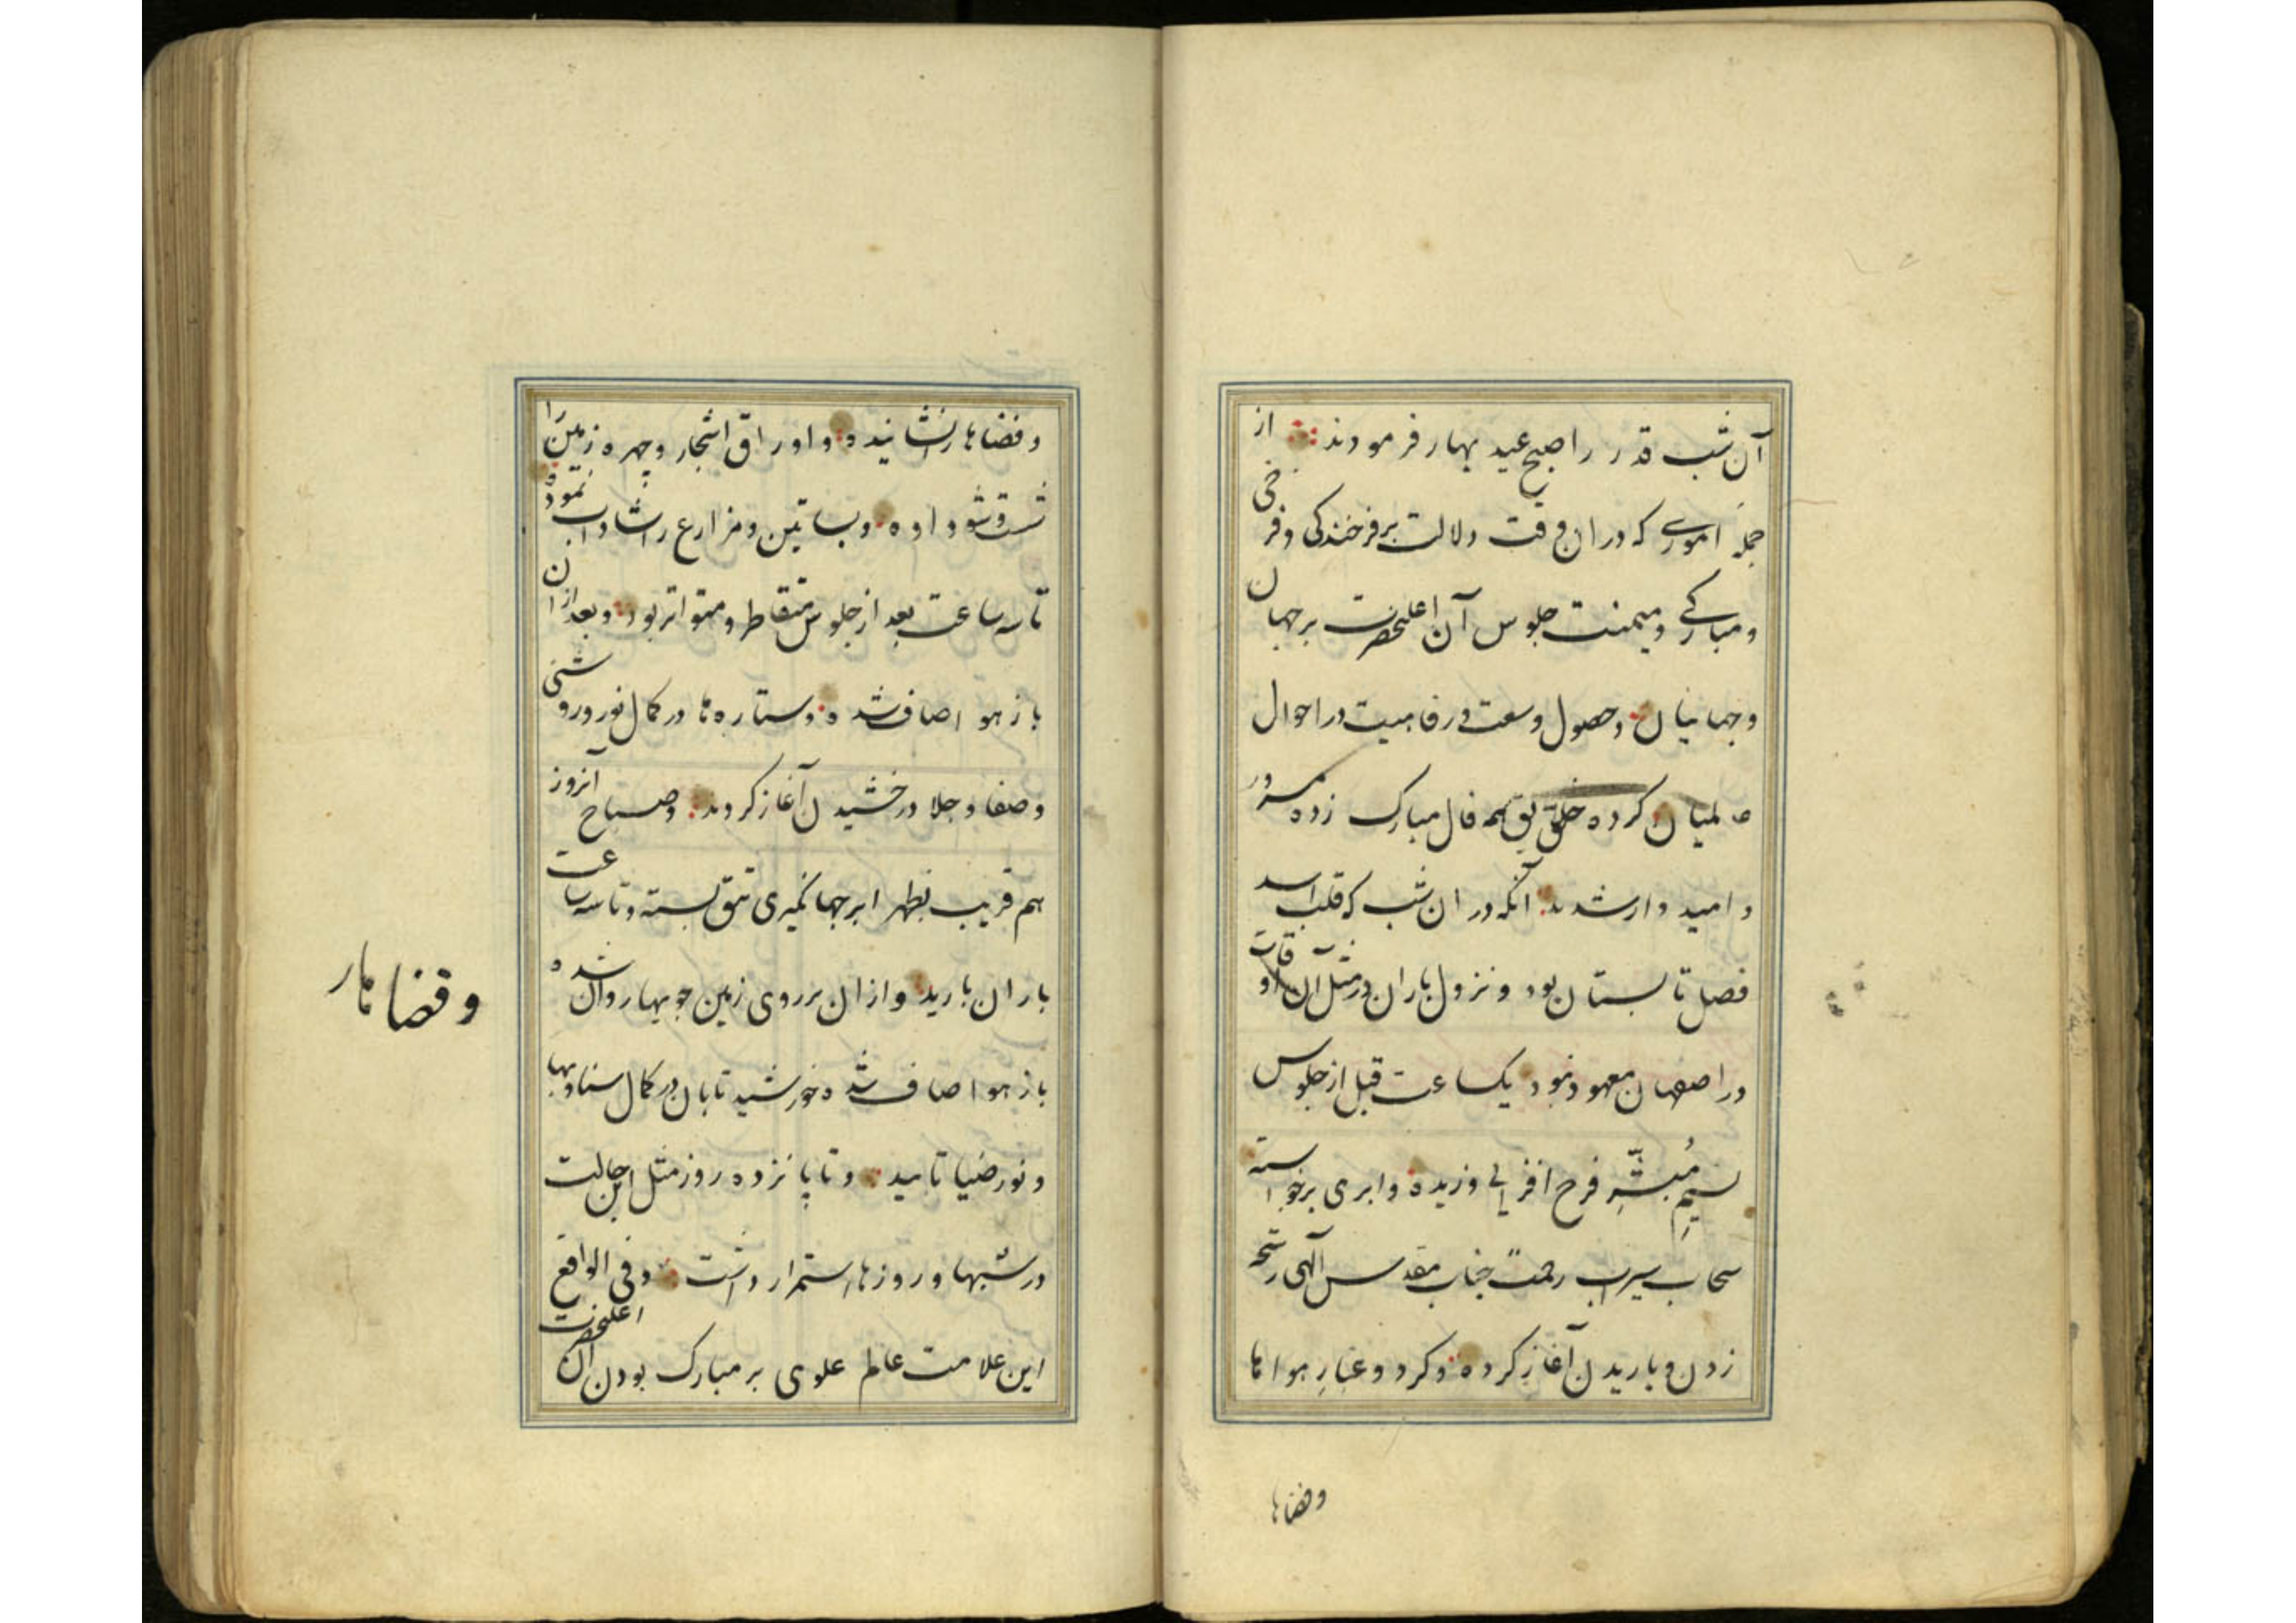 آن شب قدر را صبح عید بهار فرمودند از
جمله اموری که دران وقت دلالت بر فرخندگی و فرخی
و مبارکی و میمنت جلوس آن اعلیحضرت بر جهان
و جهانیان و حصول وسعت و رفاهیت در احوال
عالمیان کرده خلایق همه فال مبارک زده مسرور
و امیدوار شدند آنکه دران شب که قلب اسد
فصل تابستان بود و نزول باران در مثل آن اوقات
در اصفهان معهود نبود یکساعت قبل از جلوس
نسیمِ مُبشّرِ فرح افزایی وزیده و ابری برخواسته
سحاب سیراب رحمت جناب مقدس آلهی رشحه
زدن و باریدن آغاز کرده و کرد و غبارِ هوا ها
وفضاها
و فضاها را نشانیده و اوراق اشجار و چهره زمین را
شست و شو داده و بساتین و مزارع را شاداب نموده
تا سه ساعت بعد از جلوس متقاطر و متواتر بود و بعد ازان
باز هوا صاف شده و ستاره ها در کمال نور و روشنی
و صفا و جلا درخشیدن آغاز کردند و صباح آنروز
هم قریب بظهر ابر جهانگیری تتق بسته و تا سه ساعت
باران بارید و ازان بر روی زمین جویها روان شده
باز هوا صاف شد و خورشید تابان در کمال سنا و بها
و نور و ضیا تابید و تا پانزده روز مثل این حالت
در شبها و روزها استمرار داشت و فی الواقع
این علامت عالم علوی بر مبارک بودن آن اعلیحضرت
و قضا ها ر